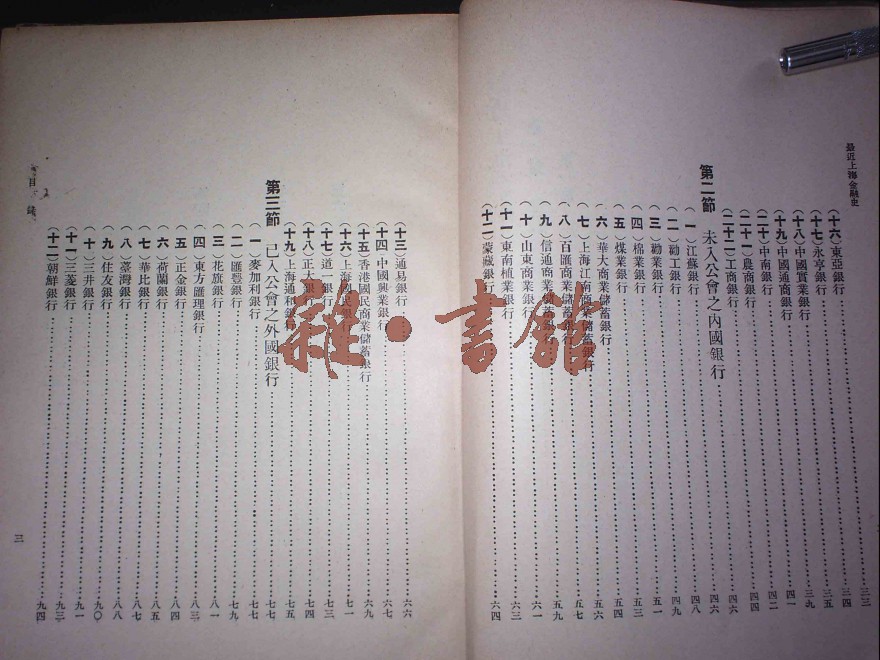 最近上海金融史
(十六)東亞銀行……三三
(十七)永亨銀行……三四
(十八)中國實業銀行……三五
(十九)中國通商銀行……三九
(二十)中南銀行……四一
(二十一)農商銀行……四二
(二十二)工商銀行……四四
第二節 未入公會之內國銀行……四六
(一)江蘇銀行……四六
(二)勸工銀行……四八
(三)勸業銀行……四九
(四)棉業銀行……五一
(五)煤業銀行……五三
(六)華大商業儲蓄銀行……五四
(七)上海江南商業儲蓄銀行……五六
(八)百匯商業儲蓄銀行……五七
(九)信通商業儲蓄銀行……五九
(十)山東商業銀行……六一
(十一)東南植業銀行……六三
(十二)蒙藏銀行……六四
(十三)通易銀行……六六
(十四)中國興業銀行……六七
(十五)香港國民商業儲蓄銀行……六九
(十六)上海國民銀行……七一
(十七)道一銀行……七三
(十八)正大銀行……七四
(十九)上海通和銀行……七五
第三節 已入公會之外國銀行……七七
(一)麥加利銀行……七七
(二)匯豐銀行……七九
(三)花旗銀行……八一
(四)東方匯理銀行……八三
(五)正金銀行……八四
(六)荷蘭銀行……八五
(七)華比銀行……八八
(八)臺灣銀行……八八
(九)住友銀行……九〇
(十)三井銀行……九一
(十一)三菱銀行……九三
(十二)朝鮮銀行……九四
目錄
三
雜·書館